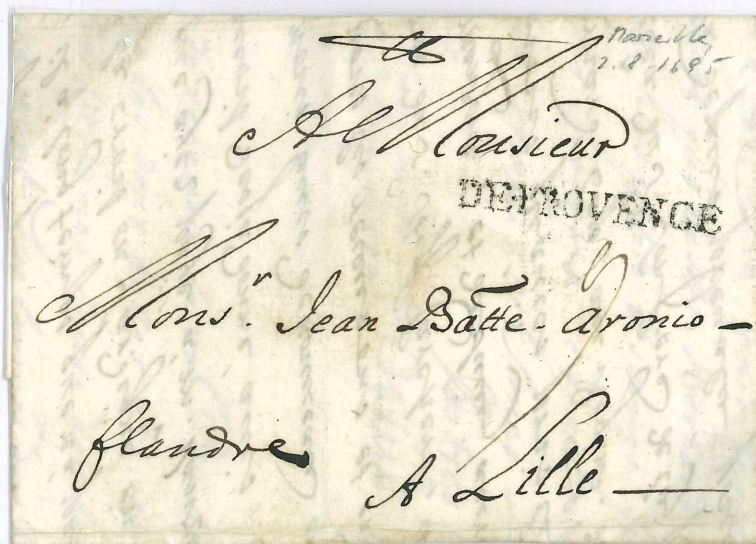 Marseille
2.8.1695
A Monsieur
DE PROVENCE
Monsr. Jean Batte. Aronio
flandre
A Lille